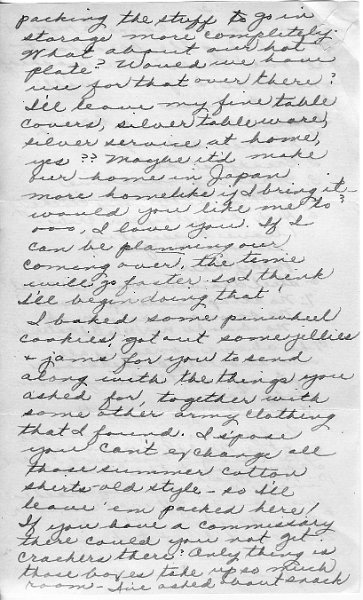 packing the stuff to go in
storage more completely.
What about our hot
plate? Would we have
use for that over there?
I'll leave my fine table
covers, silver tableware,
silver service at home,
yes?? Maybe it'd make
our home in Japan
more homelike if I bring it -
would you like me to?
ooo, I love you. If I
can be planning our
coming over, the time
will go faster so I think
I'll begin doing that!
I baked some pinwheel
cookies, got out some jellies
& jams for you to send
along with the things you
asked for, together with
some other army clothing
that I found. I s'pose
you can't exchange all
those summer cotton
shirts-old style - so I'll
leave 'em packed here!
If you have a commissary
there could you not get
crackers there? Only thing is
those boxes take up so much
room - I've asked 'bout snack